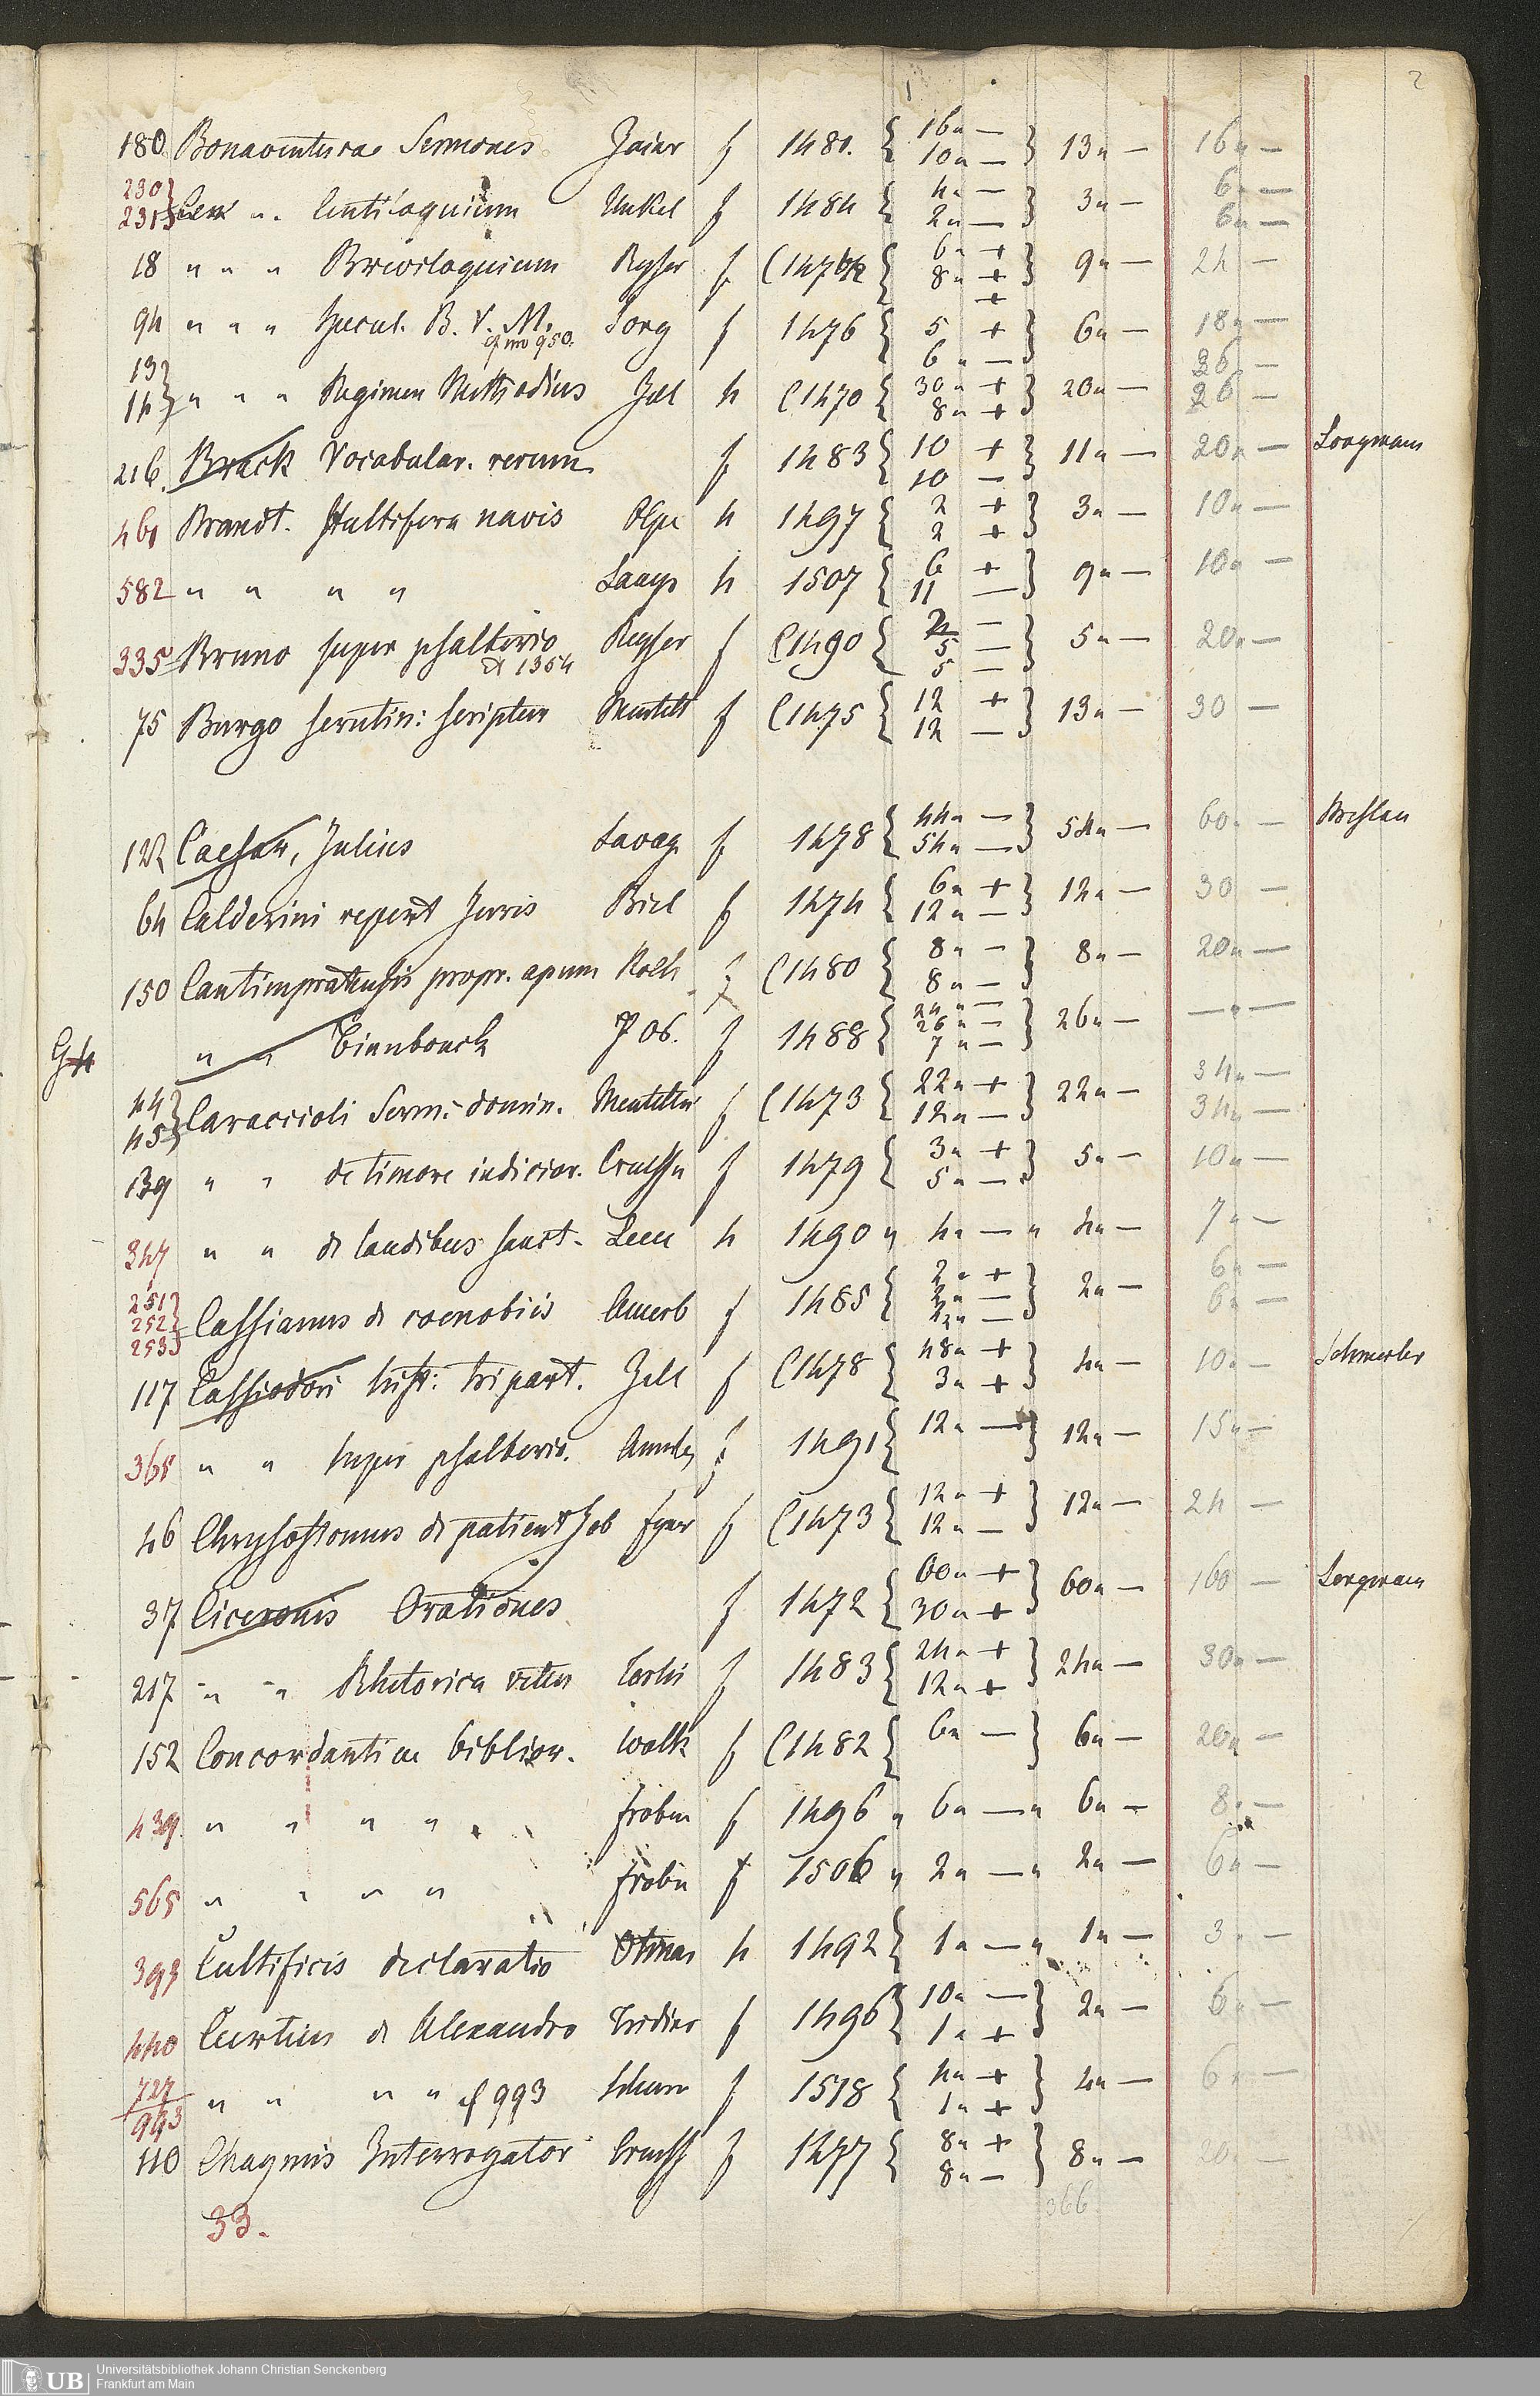 2
180 Bonaventurae Sermones Zainer f 1480. { 16 " — 10 " — } 13 " — 16 " —
230 231 } " " Centiloquium Unkel f 1484 { 4 " — 2 " — } 3 " — 6 " — 6 " —
18 " " " Breviloquium Ryser f (147 { 6 " + 8 " + + } 9 " — 24 —
94 " " " Specul. B. V. M. cf no 950. Sorg f 1476 { 5 + 6 " — } 6 " — 18 " —
13 14 } " " " Regimen Zel 4 (1470 { 30 " + 8 " + } 20 " — 26 — 26 —
216. Brack Vocabular. rerum f 1483 { 10 + 10 — } 11 " — 20 " — Longmans
461 Brandt. Stultifera navis Olpe 4 1497 { 2 + 2 + } 3 " — 10 " —
582 " " " " 4 1507 { 6 + 11 — } 9 " — 10 " —
335 Bruno super psalterio & 1354 Reyser f (1490 { — 5 — 5 — } 5 " — 20 " —
75 Burgo scrutin: scriptur Mentel f (1475 { 12 + 12 — } 13 " — 30 —
122 Caesar, Julius Lavag f 1478 { 44 " — 54 " — } 54 " — 60 " — Breslau
64 Calderini repert Juris Biel f 1474 { 6 " + 12 " — } 12 " — 30 —
150 Cantimpratensis propr. apum Koelh f (1480 { 8 " — 8 " — } 8 " — 20 " —
" " Bienbouck f 1488 { 24 " — 26 " — 7 " — } 26 " — — " —
44 45 } Caraccioli Serm: domin. Mentelin f (1473 { 22 " + 12 " — } 22 " — 34 " — 34 " —
139 " " de timore iudicior. Creussn f 1479 { 3 " + 5 " — } 5 " — 10 " —
347 " " de laudibus sanct. Leeu 4 1490 " 4 " — " 4 " — 7 " —
251 252 253 } Cassianus de coenobiis Amerb f 1485 { 2 " + 2 " — — } 2 " — 6 " — 6 " —
117 Cassiodori hist: tripart. Zell f (1478 { 48 " + 3 " + } 4 " — 10 " — Schmerber
365 " " super psalterio. Amerb f 1491 { 12 " — } 12 " — 15 " —
46 Chrysostomus de patient Job Eyser f (1473 { 12 " + 12 " — } 12 " — 24 —
37 Ciceronis Orationes f 1472 { 60 " + 30 " + } 60 " — 160 — Longmans
217 " " Rhetorica vetus Tortis f 1483 { 24 " + 12 " + } 24 " — 30 " —
152 Concordantiae biblior. f (1482 { 6 " — } 6 " — 20 " —
439 " " " " Froben f 1496 " 6 " — " 6 " — 8 " —
565 " " " " Froben f 1506 " 2 " — " 2 " — 6 " —
393 Cultificis declaratio Otmar 4 1492 { 1 " — " 1 " — 3 " —
440 Curtius de Alexandro Tridino f 1496 { 10 " — 1 " + } 2 " — 6 " —
727 993 " " " " cf 993 Schurer f 1518 { 4 " + 1 " + } 4 " — 6 " —
110 Chaymis Interrogator Creuss f 1477 { 8 " + 8 " — } 8 " — 20 " —
33.
366
UB Universitätsbibliothek Johann Christian Senckenberg
Frankfurt am Main